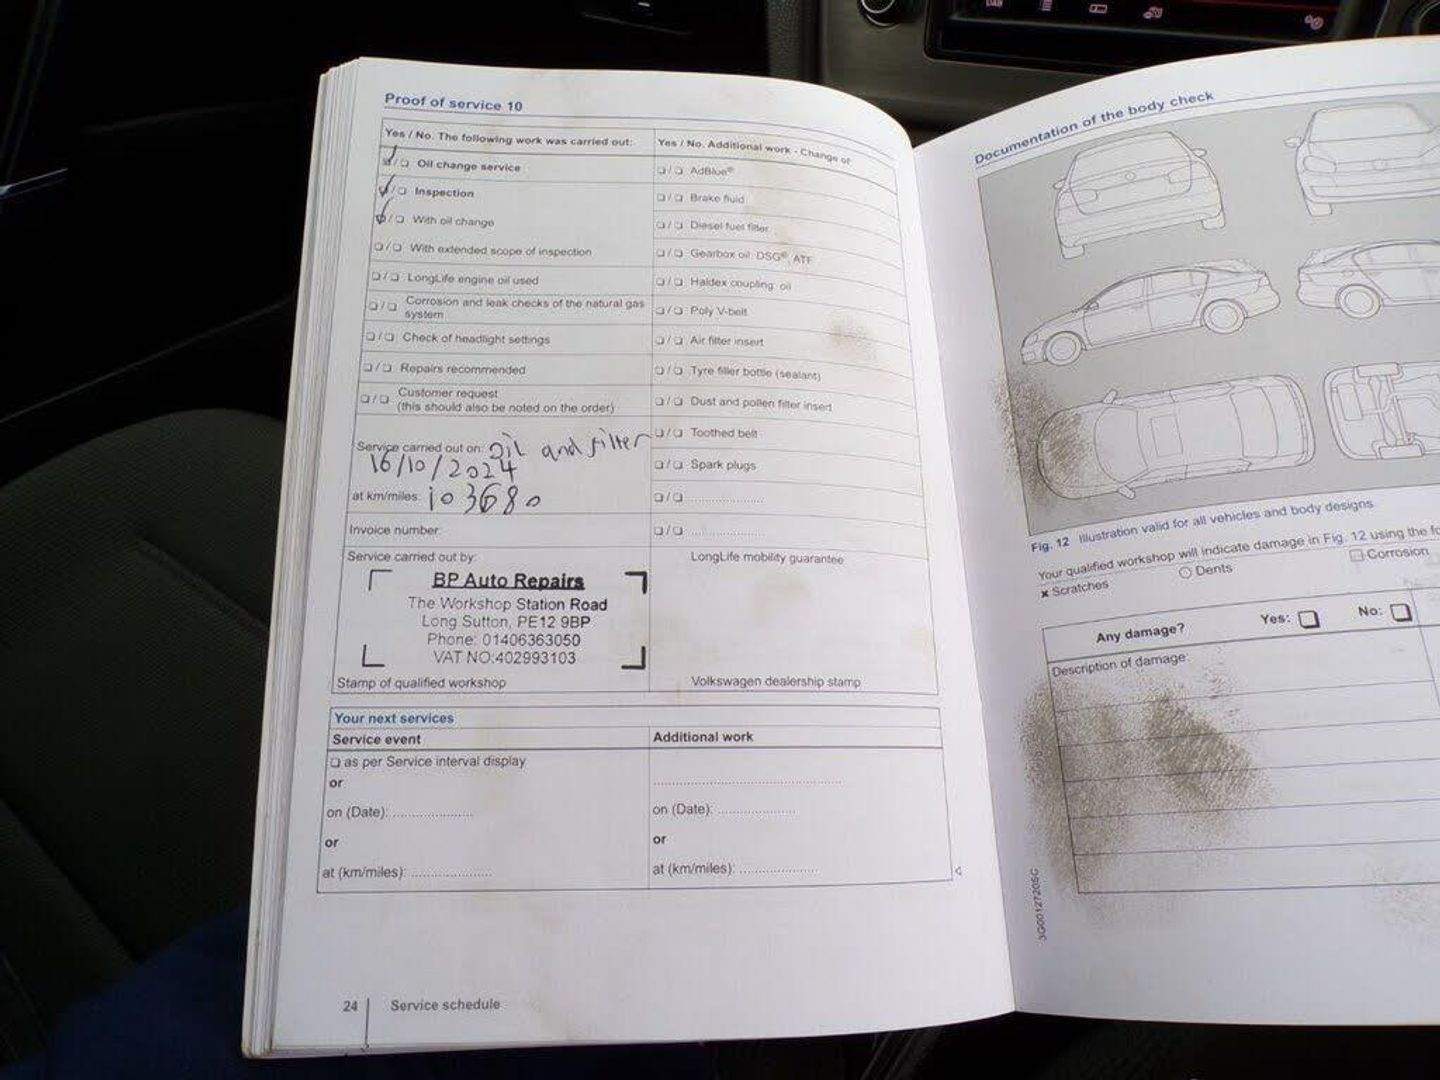 Proof of service 10
Yes / No. The following work was carried out:
❑/❑ Oil change service
❑/❑ Inspection
❑/❑ With oil change
❑/❑ With extended scope of inspection
❑/❑ LongLife engine oil used
❑/❑ Corrosion and leak checks of the natural gas
system
❑/❑ Check of headlight settings
❑/❑ Repairs recommended
❑/❑ Customer request
(this should also be noted on the order)
Service carried out on: oil and filter
16/10/2024
at km/miles: 103680
Invoice number:
Service carried out by:
BP Auto Repairs
The Workshop Station Road
Long Sutton, PE12 9BP
Phone: 01406363050
VAT NO:402993103
Stamp of qualified workshop
Yes / No. Additional work - Change of
❑/❑ AdBlue®
❑/❑ Brake fluid
❑/❑ Diesel fuel filter
❑/❑ Gearbox oil: DSG®, ATF
❑/❑ Haldex coupling: oil
❑/❑ Poly V-belt
❑/❑ Air filter insert
❑/❑ Tyre filler bottle (sealant)
❑/❑ Dust and pollen filter insert
❑/❑ Toothed belt
❑/❑ Spark plugs
❑/❑ ......................
❑/❑ ......................
LongLife mobility guarantee
Volkswagen dealership stamp
Your next services
Service event
❑ as per Service interval display
or
on (Date): ......................
or
at (km/miles): ......................
Additional work
......................
on (Date): ......................
or
at (km/miles): ......................
24 | Service schedule
Documentation of the body check
Fig. 12 Illustration valid for all vehicles and body designs
Your qualified workshop will indicate damage in Fig. 12 using the
× Scratches ○ Dents ☐ Corrosion
Any damage? Yes: ❑ No: ❑
Description of damage:
3G0012720SC